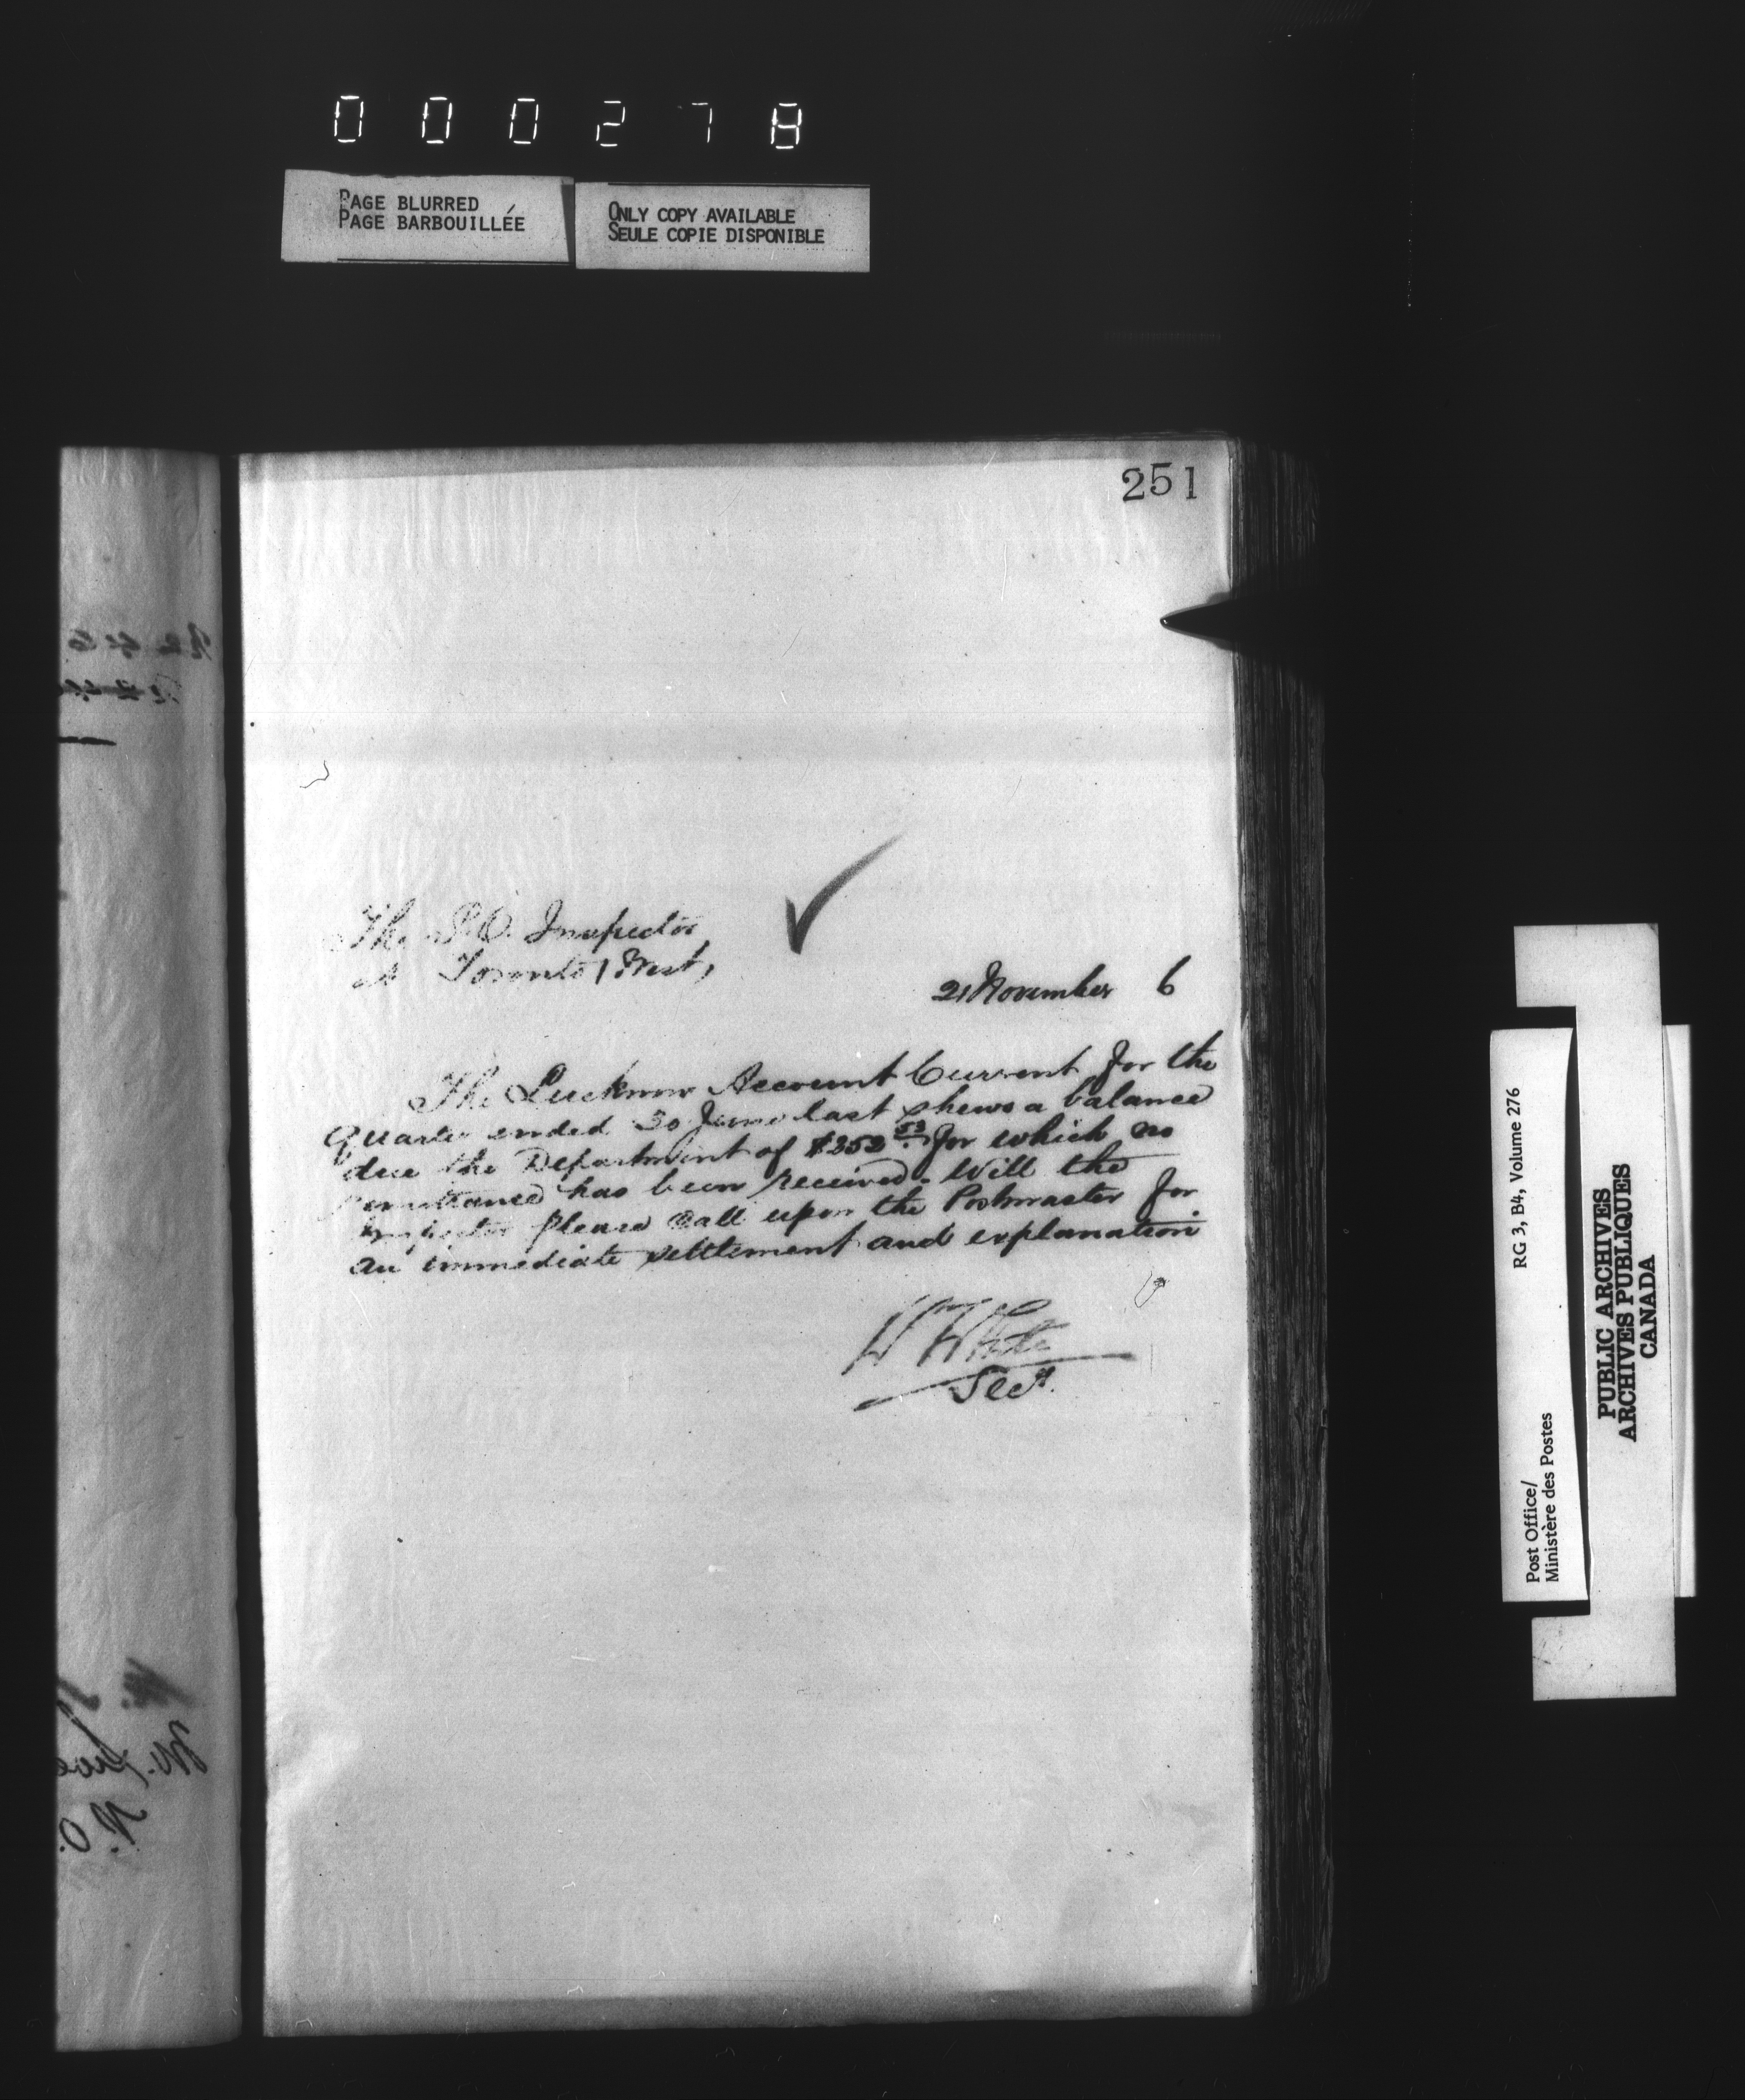 000278
PAGE BLURRED
PAGE BARBOUILLÉE
ONLY COPY AVAILABLE
SEULE COPIE DISPONIBLE
251
The P.O. Inspector
at Toronto (West)
21 November 6
The Lucknow Account Current for the
Quarter ended 30 June last shews a balance
due the Department of $352.53 for which no
remittance has been received. Will the
Inspector please call upon the Postmaster for
an immediate settlement and explanation
W White
Secy.
Post Office/
Ministère des Postes
RG 3, B4, Volume 276
PUBLIC ARCHIVES
ARCHIVES PUBLIQUES
CANADA